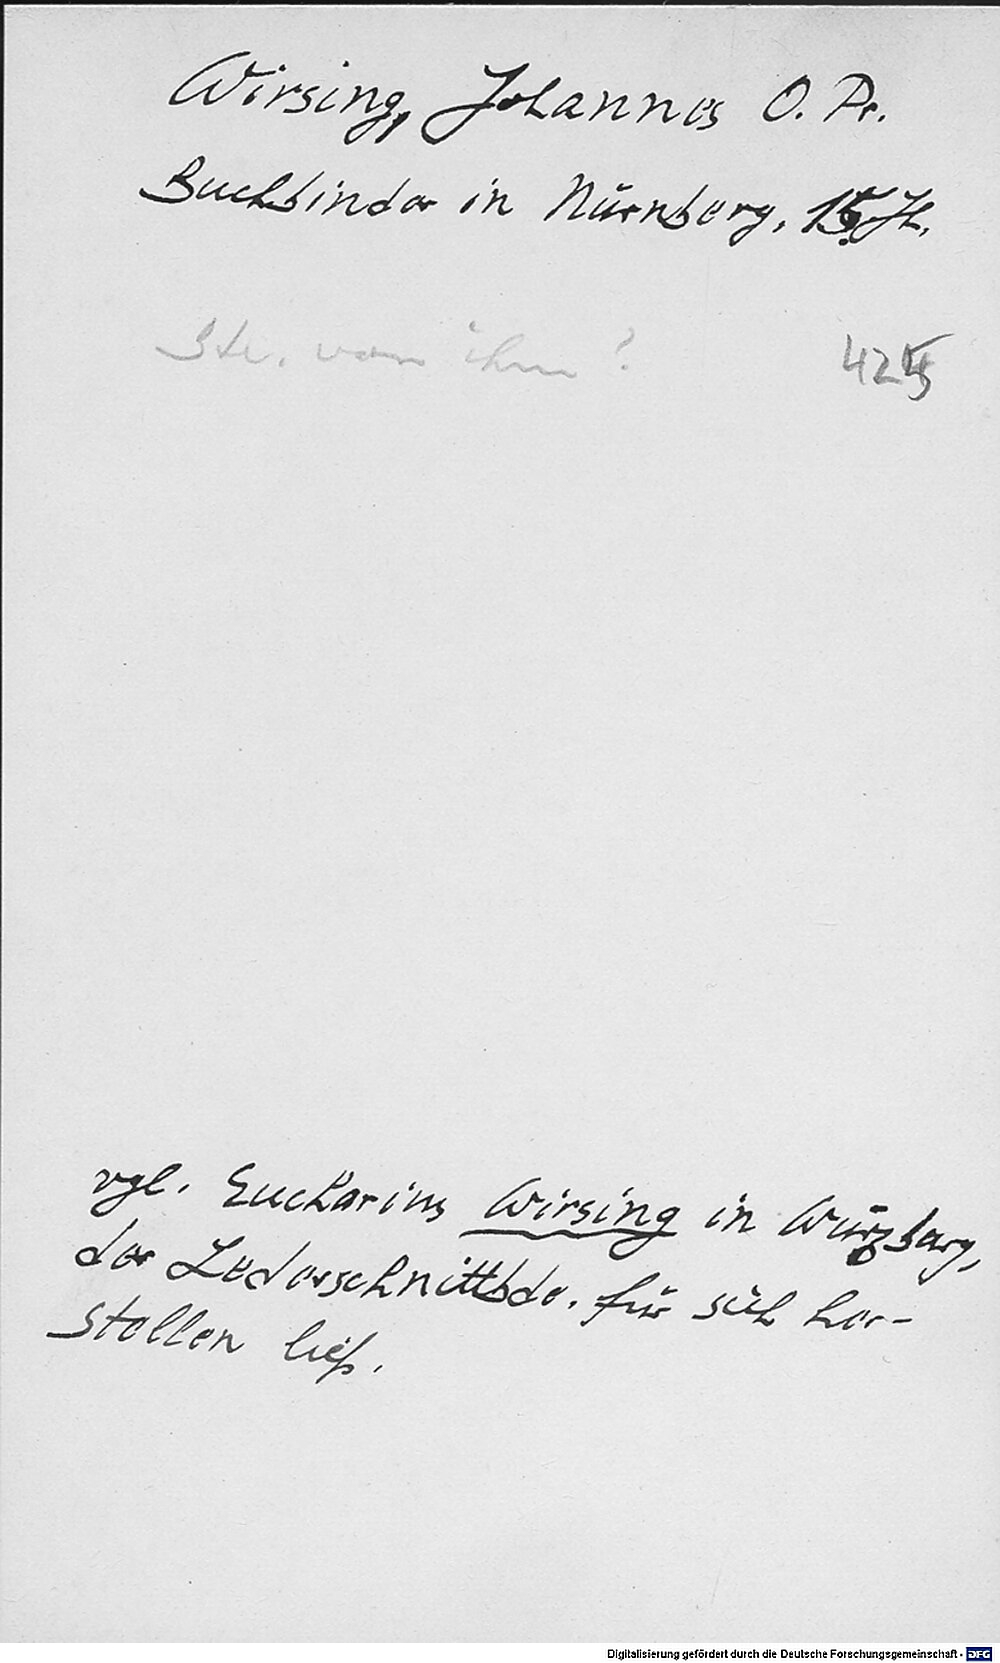 Wirsing, Johannes O. Pr.
Buchbinder in Nürnberg, 15. Jh.
Ste. von ihm?
vgl. Eucharius Wirsing in Würzburg,
der Lederschnittbde. für sich her-
stellen ließ.
Digitalisierung gefördert durch die Deutsche Forschungsgemeinschaft - DFG